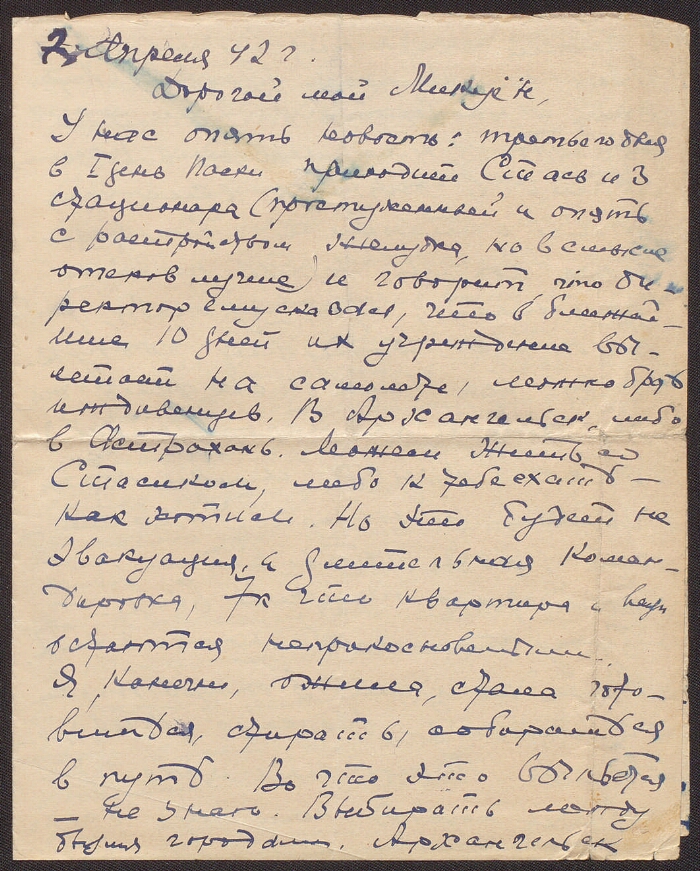 7 Апреля 42 г.
Дорогой мой
У нас опять новость: третьего дня
в I день Пасхи приходит Стась из
стационара (простуженный и опять
с растройством желудка, но в смысле
отеков лучше) и говорит, что ди-
ректор сказал, что в ближай-
шие 10 дней их учреждение вы-
летает на самолете, можно брать
иждивенцев. В Архангельск, либо
в Астрахань. Можем жить со
Стасиком, либо к тебе ехать –
как хотим. Но это будет не
эвакуация, а длительная коман-
дировка, тк что квартира и вещи
остаются неприкосновенными.
Я, конечно, ожила, стала гото-
виться, стирать, собираться
в путь. Во что это выльется
– не знаю. Выбирать между
двумя городами. Архангельск